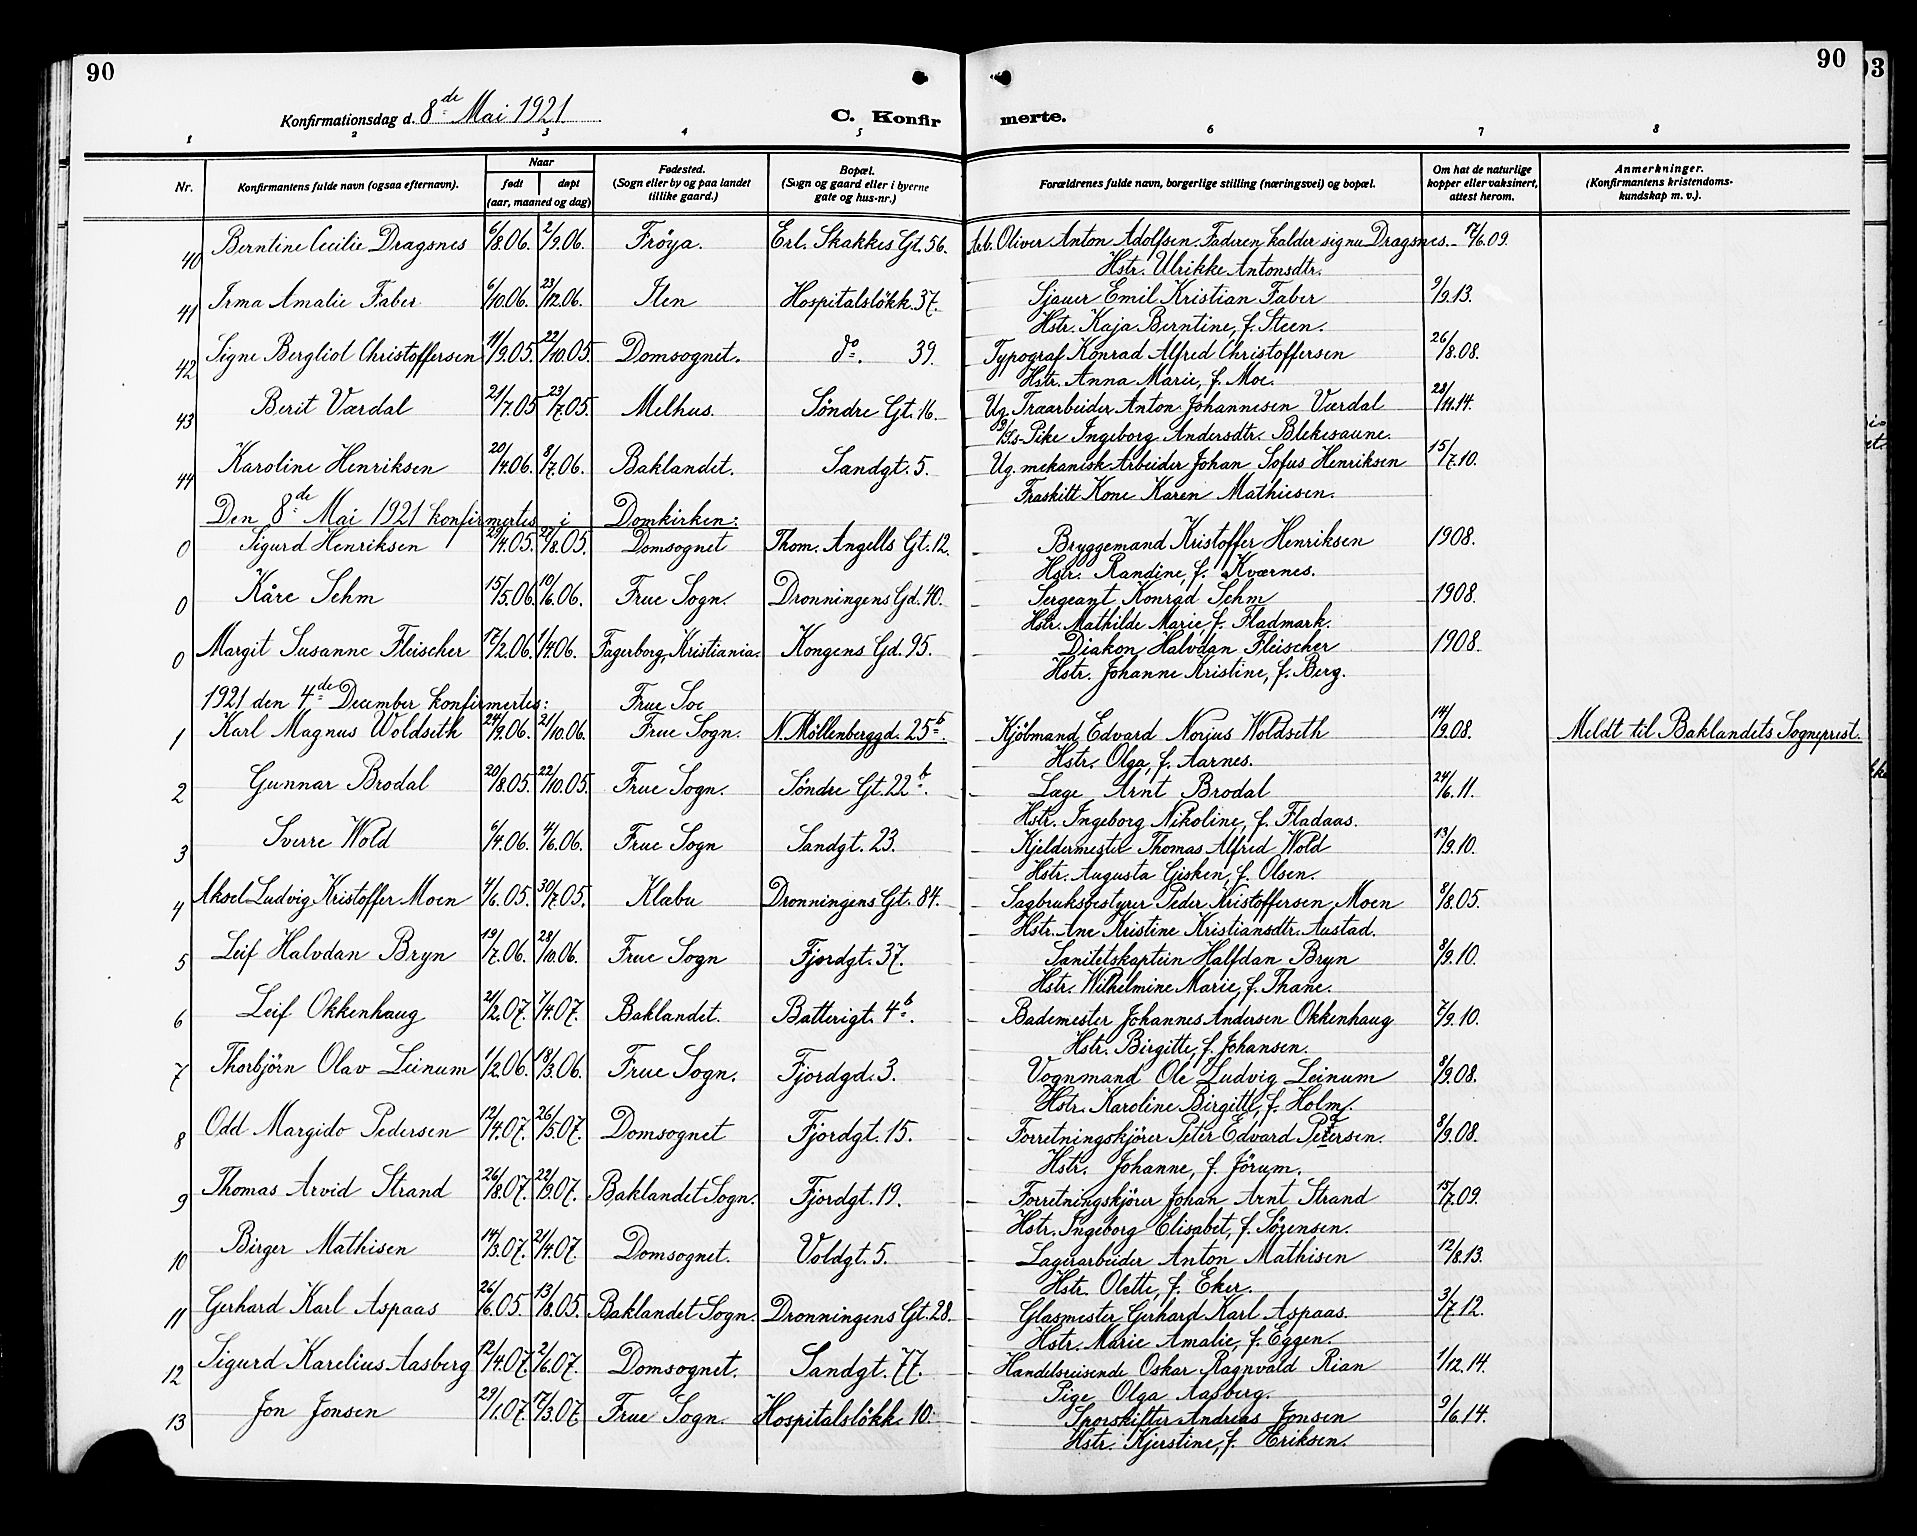 90
90
Konfirmationsdag d. 8de Mai 1921.
C. Konfirmerte.
1 2 3 4 5 6 7 8
Nr. Konfirmantens fulde navn (ogsaa efternavn). Naar født døpt (aar, maaned og dag) Fødested. (Sogn eller by og paa landet tillike gaard.) Bopæl. (Sogn og gaard eller i byerne gate og hus-nr.) Forældrenes fulde navn, borgerlige stilling (næringsvei) og bopæl. Om hat de naturlige kopper eller vaksinert, attest herom. Anmerkninger. (Konfirmantens kristendoms-kundskap m. v.).
40 Berntine Cecilie Dragsnes 6/8.06. 2/9.06. Fröya. Erl. Skakkes Gt. 56. Arb. Oliver Anton Adolfsen. Faderen kalder sig nu Dragsnes. 17/6.09.
Hstr. Ulrikke Antonsdtr.
41 Irma Amalie Faber 6/10.06. 23/12.06. Ilen Hospitalslökk. 37. Sjauer Emil Kristian Faber 9/9.13.
Hstr. Kaja Berntine, f. Steen.
42 Signe Bergliot Christoffersen 11/9.05. 22/10.05. Domsognet. do. 39. Typograf Konrad Alfred Christoffersen 26/8.08.
Hstr. Anna Marie, f. Moe.
43 Berit Værdal 21/7.05 23/7.05. Melhus. Söndre Gt. 16. Ug. Træarbeider Anton Johannesen Værdal 28/11.14.
Pike Ingeborg Andersdtr. Blekesaune.
44 Karoline Henriksen 20/4.06. 8/7.06. Baklandet. Sandgt. 5. Ug. mekanisk Arbeider Johan Sofus Henriksen 15/7.10.
Fraskilt Kone Karen Mathiesen.
Den 8de Mai 1921 konfirmertes i Domkirken:
0 Sigurd Henriksen 29/4.05. 27/8.05. Domsognet Thom. Angells Gt. 12. Bryggemand Kristoffer Henriksen 1908.
Hstr. Randine, f. Kværnes.
0 Kåre Sehm 15/5.06. 10/6.06. Frue Sogn. Dronningens Gd. 40. Sergeant Konrad Sehm 1908.
Hstr. Mathilde Marie, f. Fladmark.
0 Margit Susanne Fleischer 17/2.06. 1/4.06. Fagerborg, Kristiania. Kongens Gd. 95. Diakon Halvdan Fleischer 1908.
Hstr. Johanne Kristine, f. Berg.
1921 den 4de December konfirmertes: Frue Soc
1 Karl Magnus Woldseth 24/9.06. 21/10.06. Frue Sogn. N. Möllenberggd. 25b. Kjöbmand Edvard Norjus Woldseth 14/9.08. Meldt til Baklandets Sogneprest.
Hstr. Olga, f. Aarnes.
2 Gunnar Brodal 20/8.05. 22/10.05. Frue Sogn. Söndre Gt. 22b. Læge Arnt Brodal 24/6.11.
Hstr. Ingeborg Nikoline, f. Fladaas.
3 Sverre Wold 6/4.06. 4/6.06. Frue Sogn Sandgt. 23. Kjeldermester Thomas Alfred Wold 13/9.10.
Hstr. Augusta Gisken, f. Olsen.
4 Aksel Ludvig Kristoffer Moen 4/6.05. 30/7.05. Klæbu Dronningens Gt. 84. Sagbruksbestyrer Peder Kristoffersen Moen 8/8.05.
Hstr. Ane Kristine Kristiansdtr. Austad.
5 Leif Halvdan Bryn 19/7.06. 28/10.06. Frue Sogn Fjordgt. 37. Sanitetskaptein Halfdan Bryn 8/9.10.
Hstr. Wilhelmine Marie, f. Thane.
6 Leif Okkenhaug 21/2.07. 7/4.07. Baklandet. Batterigt. 4b. Bademester Johannes Andersen Okkenhaug 7/9.10.
Hstr. Birgitte, f. Johansen.
7 Thorbjörn Olav Leinum 1/2.06. 18/3.06. Frue Sogn. Fjordgd. 3. Vognmand Ole Ludvig Leinum 8/9.08.
Hstr. Karoline Birgitte, f. Holm.
8 Odd Margido Pedersen 12/4.07. 26/5.07. Domsognet Fjordgt. 15. Forretningskjörer Peter Edvard Pedersen. 8/9.08.
Hstr. Johanne, f. Jörum.
9 Thomas Arvid Strand 26/8.07. 22/9.07. Baklandet Sogn. Fjordgt. 19. Forretningskjörer Johan Arnt Strand 15/7.09.
Hstr. Ingeborg Elisabet, f. Sörensen.
10 Birger Mathisen 14/3.07. 21/4.07. Domsognet. Voldgt. 5. Lagerarbeider Anton Mathisen 12/8.13.
Hstr. Olette, f. Eker.
11 Gerhard Karl Aspaas 26/6.05. 13/8.05. Baklandet Sogn. Dronningens Gt. 28. Glasmester Gerhard Karl Aspaas. 3/7.12.
Hstr. Marie Amalie, f. Eggen.
12 Sigurd Karelius Aasberg 12/4.07. 2/6.07. Domsognet. Sandgt. 77. Handelsreisende Oskar Ragnvald Rian 1/12.14.
Pige Olga Aasberg.
13 Jon Jonsen 29/1.07. 17/3.07. Frue Sogn. Hospitalslökk. 10. Sporskifter Andreas Jonsen 9/6.14.
Hstr. Kjerstine, f. Eriksen.